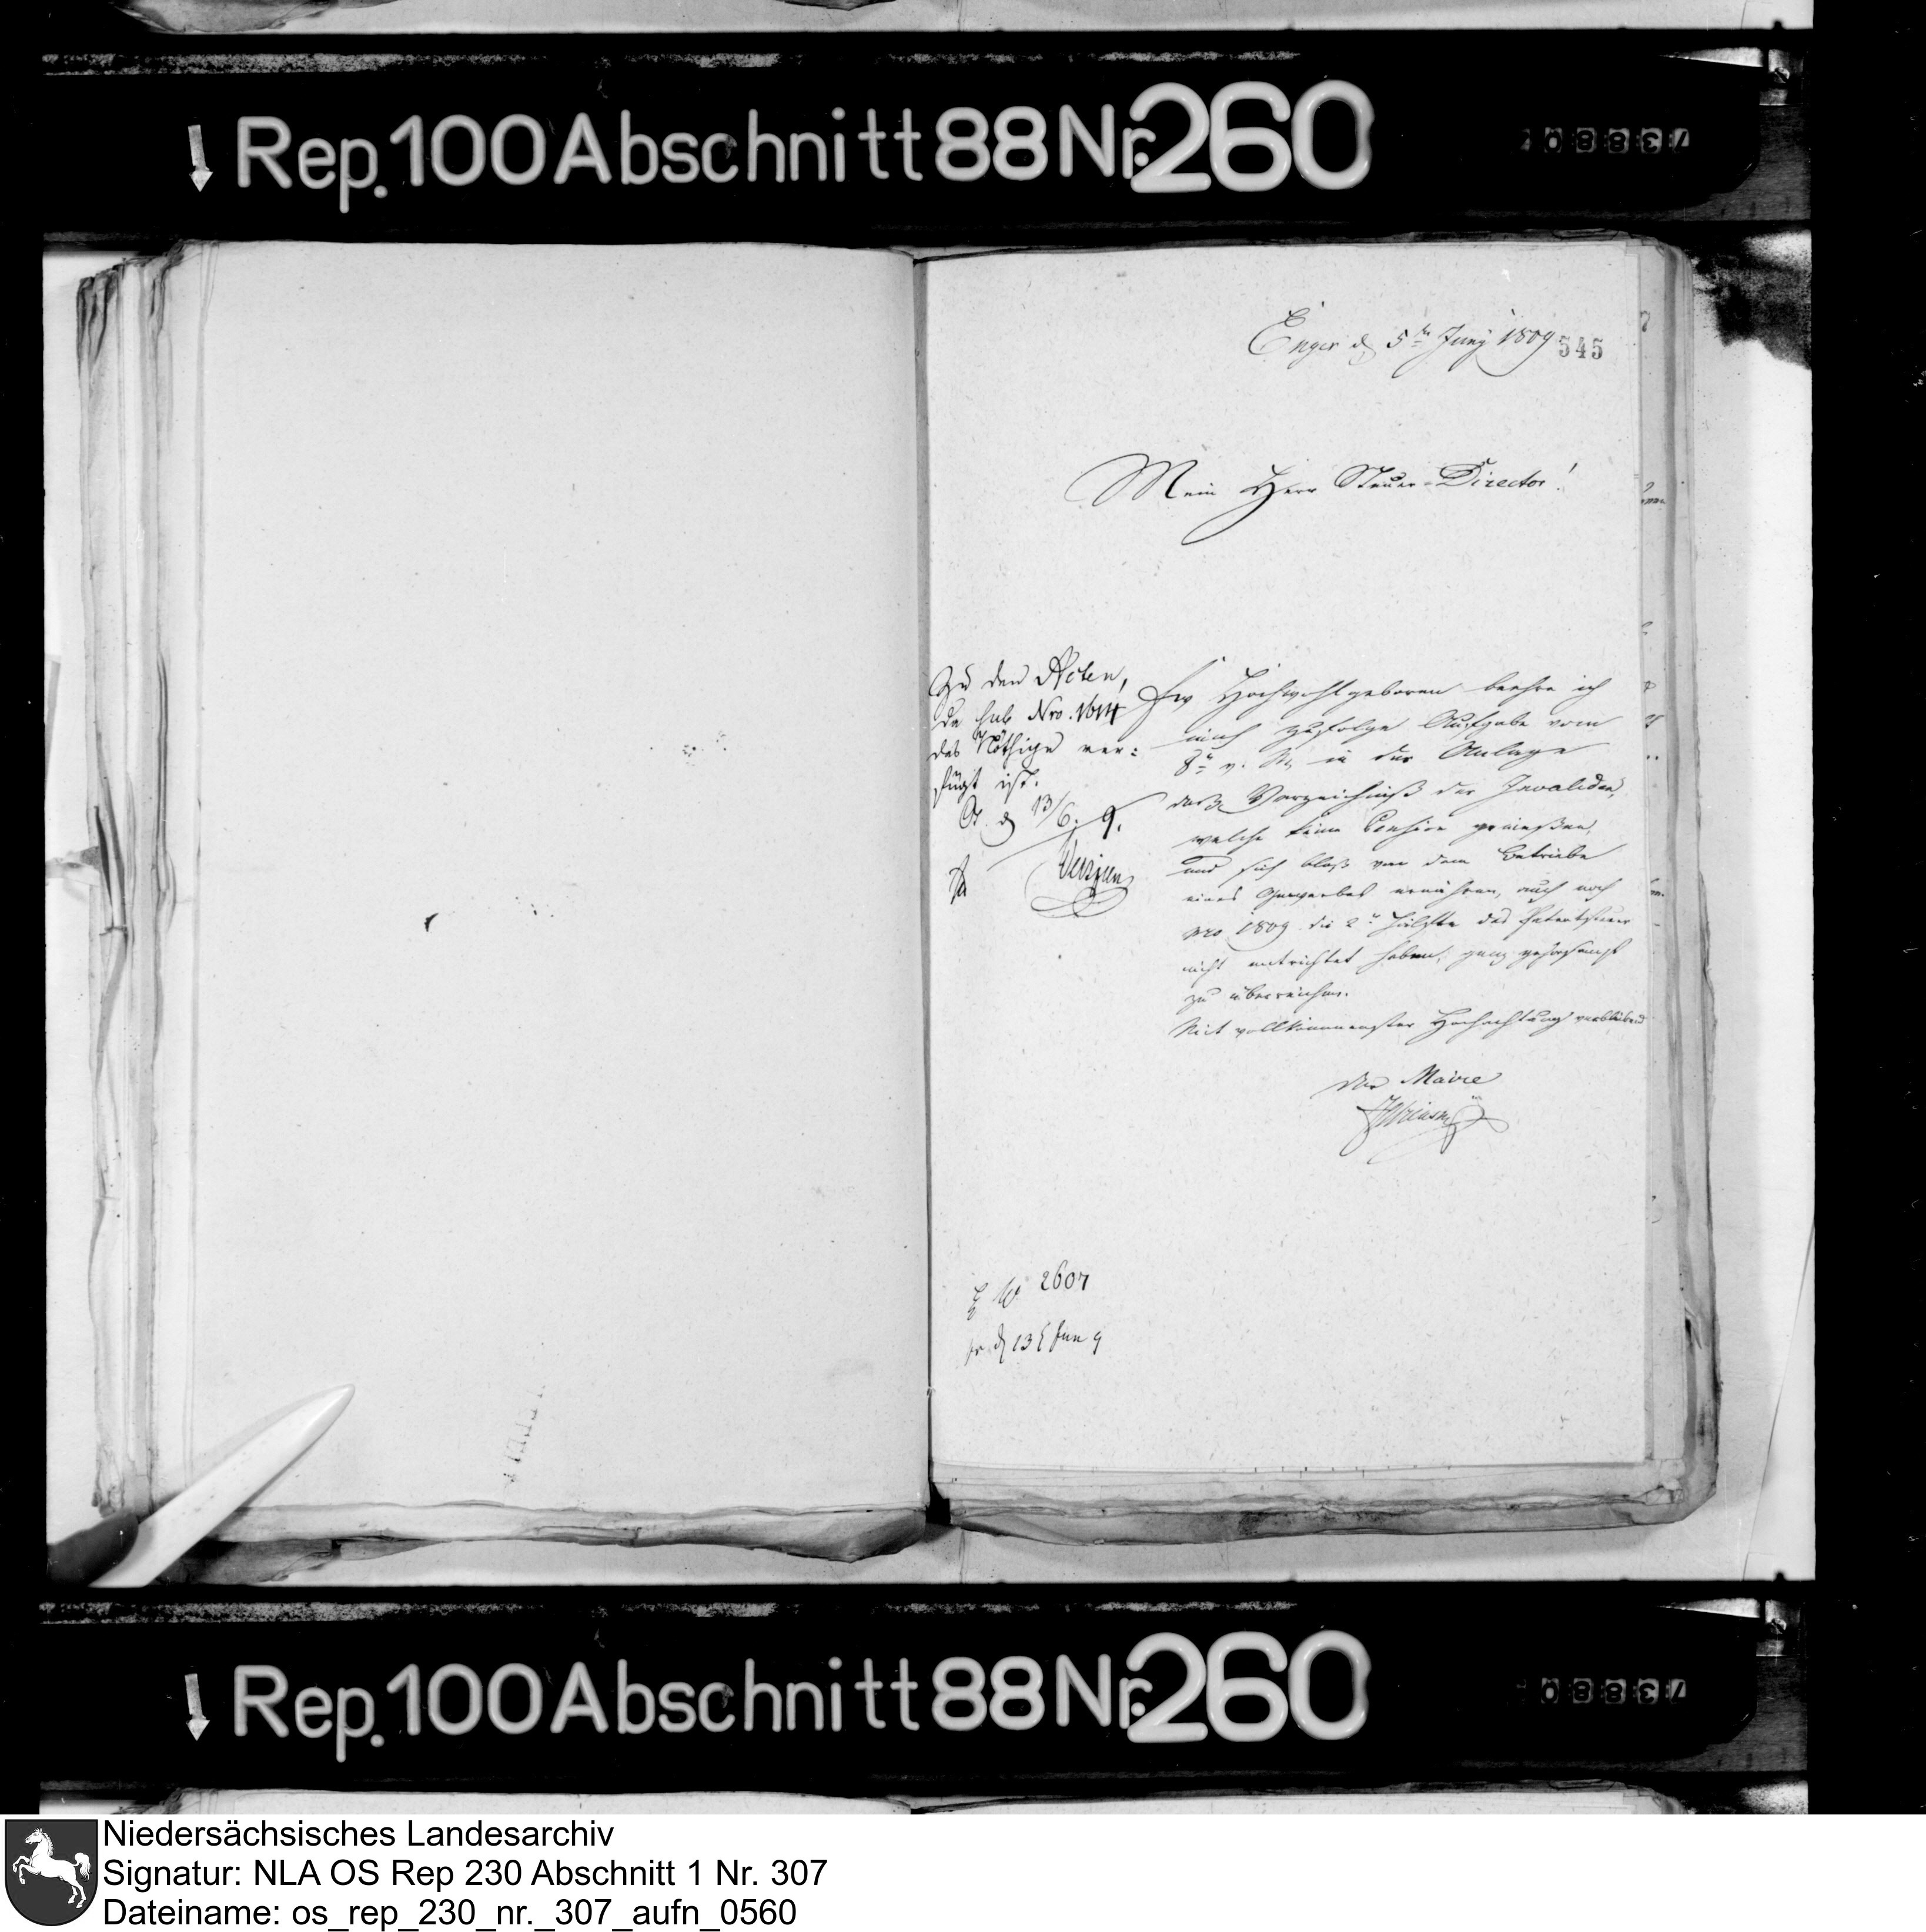 Rep. 100 Abschnitt 88 Nr. 260
Enger d 5ten Juny 1809
545
Mein Herr Steuer-Director!
Zu den Acten,
da sub Nro. 1614
das Nöthige ver=
fügt ist.
O. d 13/6. 9.
Ew Hochwohlgeboren beehre ich
mich zufolge Aufgabe vom
8ten v. M. in der Anlage
das Verzeichniß der Invaliden,
welche keine Pension genießen,
und sich bloß von dem Betriebe
eines Gewerbes ernähren, auch noch
pro 1809 die 2te Hälfte der Patentsteuer
nicht entrichtet haben, ganz gehorsamst
zu überreichen.
Mit vollkommenster Hochachtung verbleibend
der Maire
2607
pr d 13t Jun 9
Rep. 100 Abschnitt 88 Nr. 260
Niedersächsisches Landesarchiv
Signatur: NLA OS Rep 230 Abschnitt 1 Nr. 307
Dateiname: os_rep_230_nr._307_aufn_0560